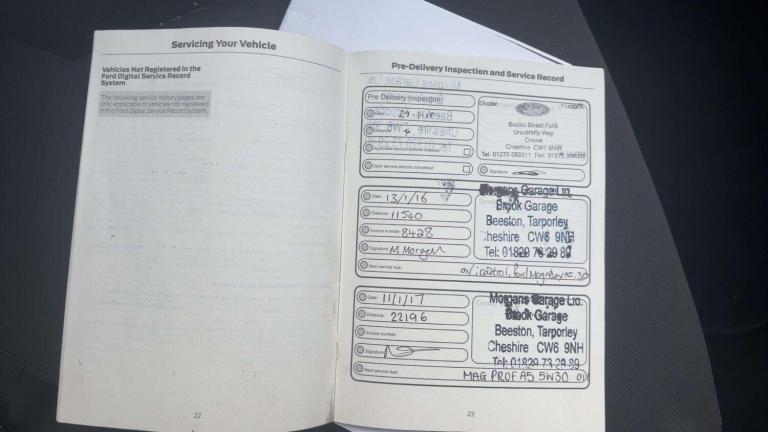 Servicing Your Vehicle
Vehicles Not Registered in the
Ford Digital Service Record
System
The following service history pages are
only applicable to vehicles not registered
in the Ford Digital Service Record system.
22
Pre-Delivery Inspection and Service Record
Pre Delivery Inspection
Dealer
Ford
Bristol Street Ford
University Way
Crewe
Cheshire CW1 6NW
Tel: 01270 Fax: 01270
Signature
Open service actions completed
Date: 13/1/16
Distance: 11540
Invoice number: 8428
Signature: M. Morgan
Next service due:
Morgans Garage Ltd.
Brook Garage
Beeston, Tarporley
Cheshire CW6 9NH
Tel: 01829 73 29 89
Date: 11/1/17
Distance: 22196
Invoice number:
Signature:
Next service due: MAG PROF A5 5W30 oil
Morgans Garage Ltd.
Brook Garage
Beeston, Tarporley
Cheshire CW6 9NH
Tel: 01829 73 29 89
23